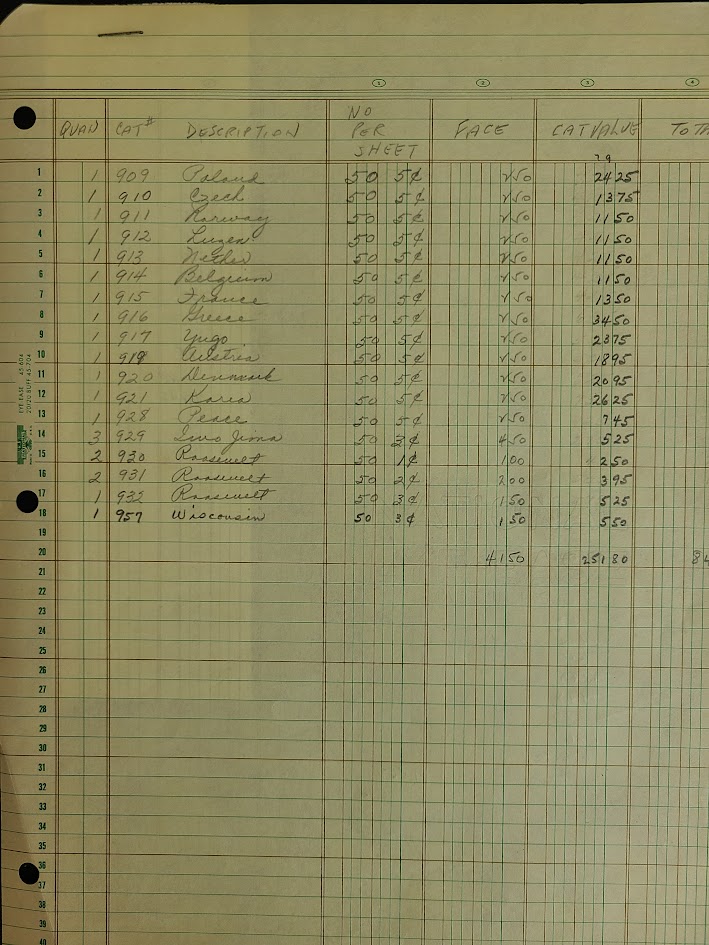 ① ② ③ ④
QUAN CAT# DESCRIPTION NO PER SHEET FACE CAT VALUE TOTA
79
1 1 909 Poland 50 5¢ 250 2425
2 1 910 Czech 50 5¢ 250 1375
3 1 911 Norway 50 5¢ 250 1150
4 1 912 Luxem 50 5¢ 250 1150
5 1 913 Nether 50 5¢ 250 1150
6 1 914 Belgium 50 5¢ 250 1150
7 1 915 France 50 5¢ 250 1350
8 1 916 Greece 50 5¢ 250 3450
9 1 917 Yugo 50 5¢ 250 2375
10 1 919 Austria 50 5¢ 250 1895
11 1 920 Denmark 50 5¢ 250 2095
12 1 921 Korea 50 5¢ 250 2625
13 1 928 Peace 50 5¢ 250 745
14 3 929 Iwo Jima 50 3¢ 450 525
15 2 930 Roosevelt 50 1¢ 100 250
16 2 931 Roosevelt 50 2¢ 200 395
17 1 932 Roosevelt 50 3¢ 150 525
18 1 957 Wisconsin 50 3¢ 150 550
19
20 4150 25180 84
21
22
23
24
25
26
27
28
29
30
31
32
33
34
35
36
37
38
39
40
EYE-EASE 45-604
20/20 BUFF 45-704